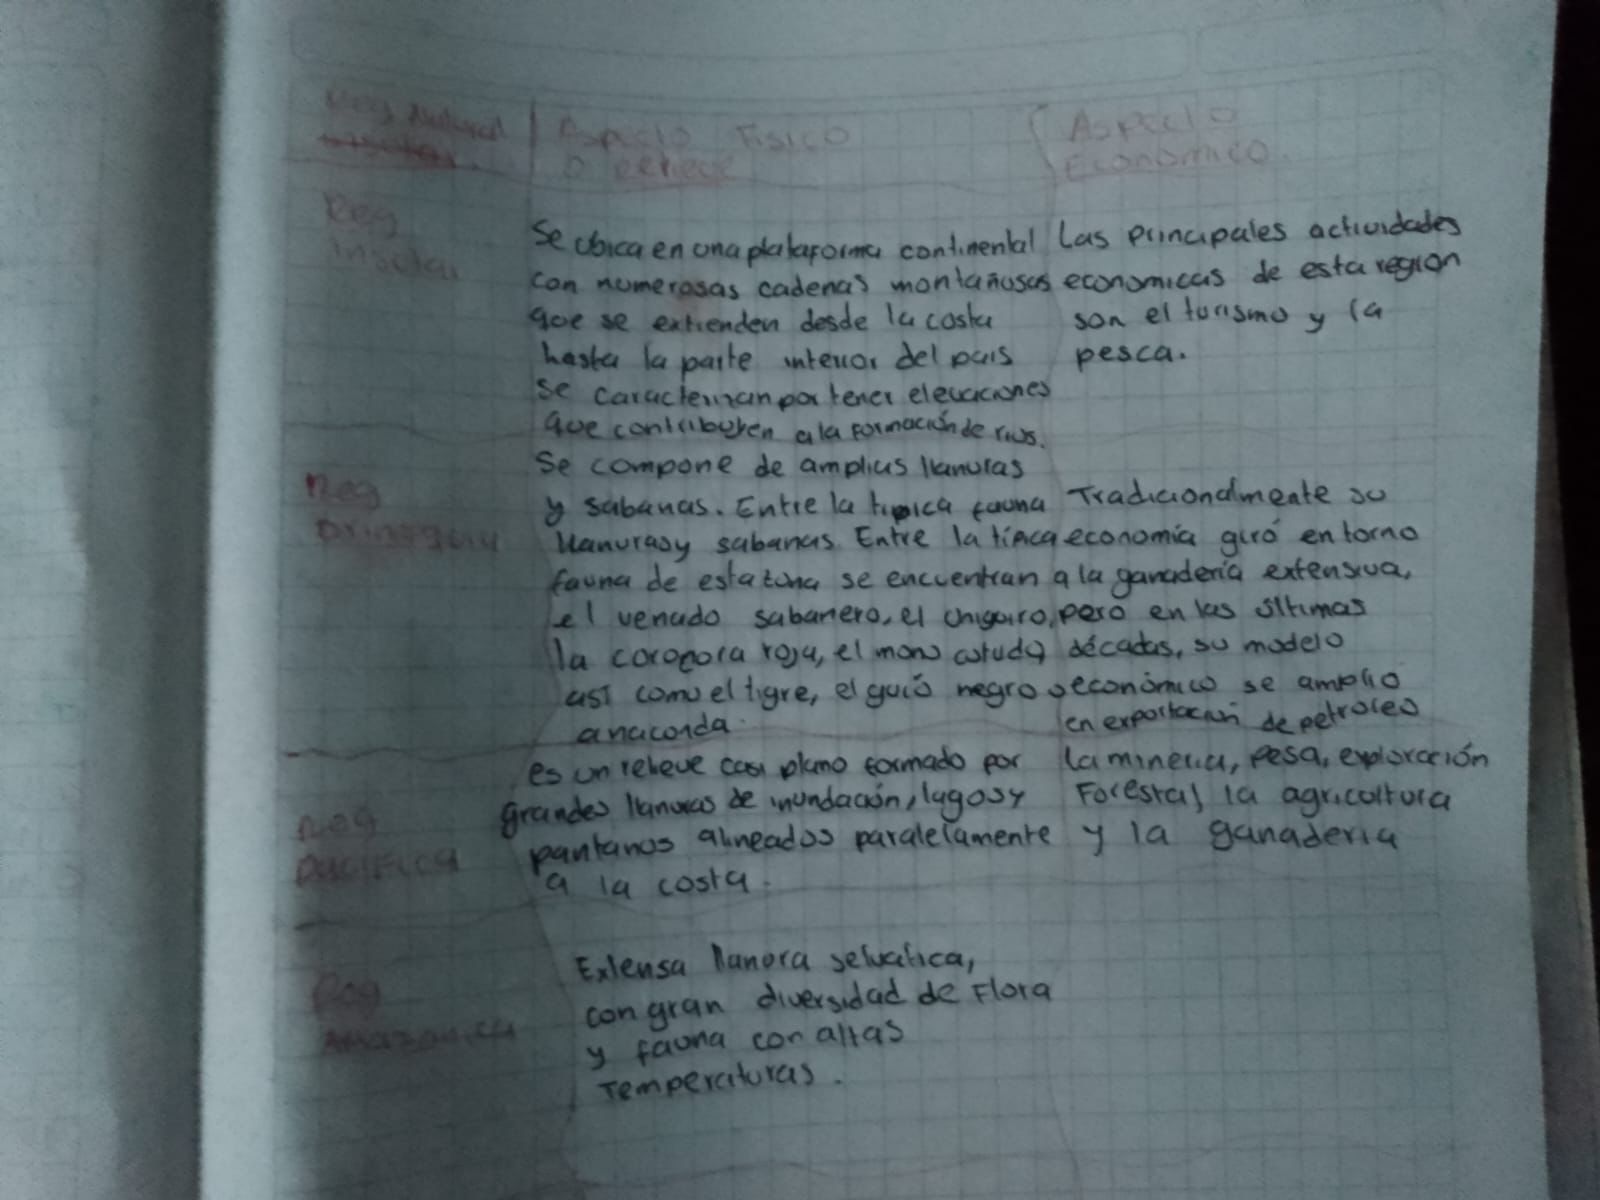 Reg Natural | Aspecto Fisico | Aspecto
o relieve Economico.
Reg
Insular
Se ubica en una plataforma continental
con numerosas cadenas montañosas
que se extienden desde la costa
hasta la parte interior del pais
se caracterizan por tener elevaciones
que contribuyen a la formación de rios.
Las principales actividades
economicas de esta region
son el turismo y la
pesca.
Reg
Orinoquia
Se compone de amplias llanuras
y sabanas. Entre la tipica fauna
llanuras y sabanas. Entre la típica
fauna de esta zona se encuentran
el venado sabanero, el chiguiro,
la corocora roja, el mono cotudo,
así como el tigre, el guió negro o
anaconda.
Tradicionalmente su
economía giró en torno
a la ganadería extensiva,
pero en las últimas
décadas, su modelo
económico se amplio
en exportación de petroleo
Reg
pacifica
es un relieve casi plano formado por
grandes llanuras de inundación, lagos y
pantanos alineados paralelamente
a la costa.
La mineria, pesa, exploración
Forestal, la agricultura
y la ganaderia
Reg
Amazonica
Extensa llanora selvatica,
con gran diversidad de Flora
y fauna con altas
Temperaturas.